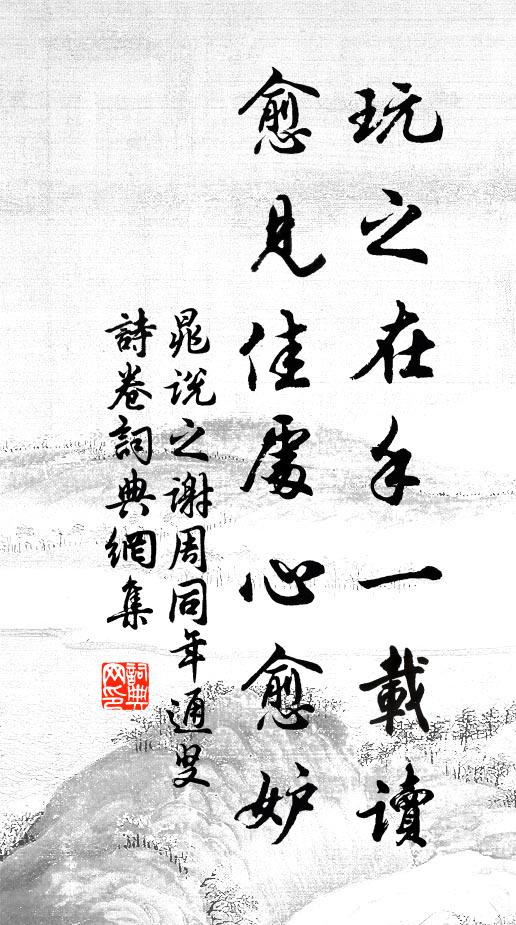 玩之在手一載讀
愈見佳處心愈妒
晁說之謝周同年通叟
詩卷詞典網集
詞典網印